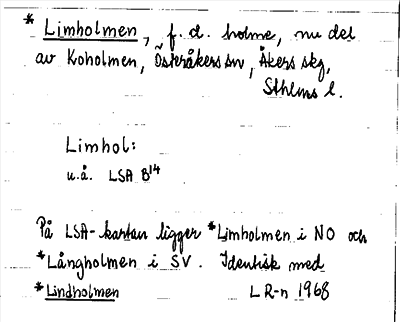 * Limholmen, f.d. holme, nu del
av Koholmen, Österåkers sn, Åkers skg,
Sthlms l.
Limhol:
u.å. LSA B14
På LSA-kartan ligger *Limholmen i NO och
*Långholmen i SV. Identisk med
*Lindholmen L R-n 1968